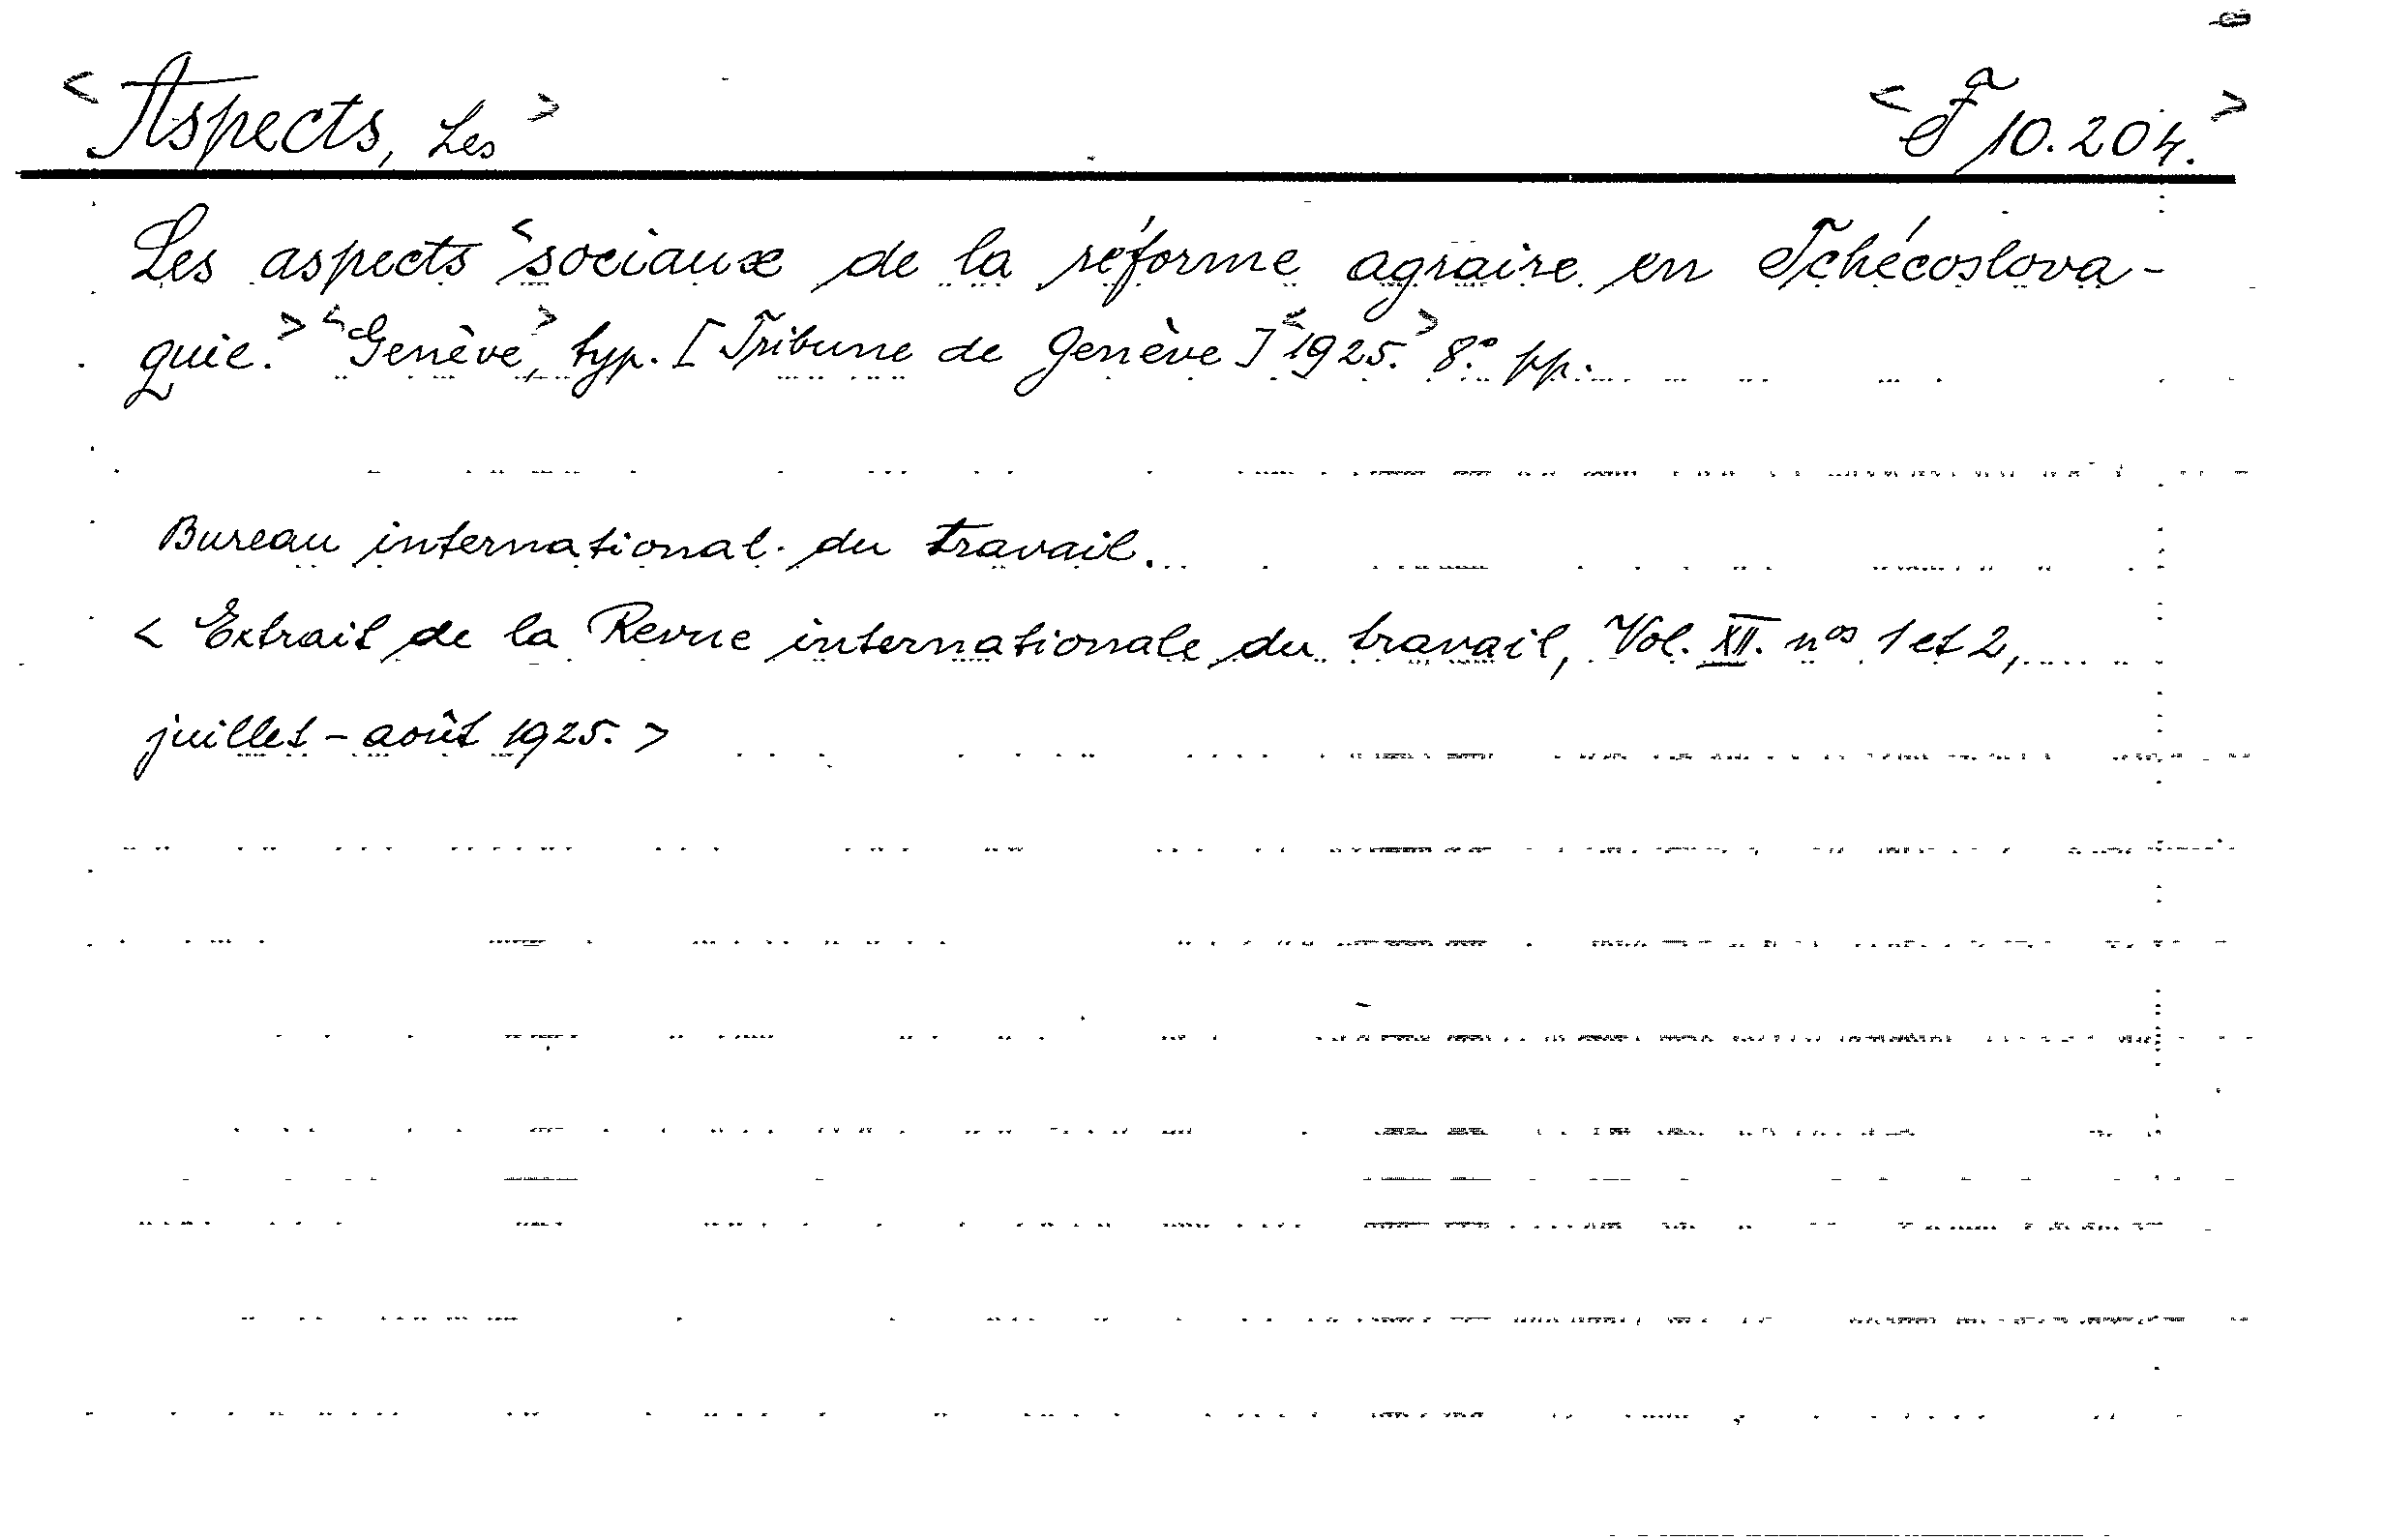 <Aspects, Les> <F 10.204.>
Les aspects <sociaux de la réforme agraire en Tchécoslova-
quie.> <Genève>, typ. [Tribune de Genève] <1925.> 8.° pp.
Bureau international du travail.
<Extrait de la Revue internationale du travail, Vol. XII. nos 1 et 2,
juillet - août 1925.>